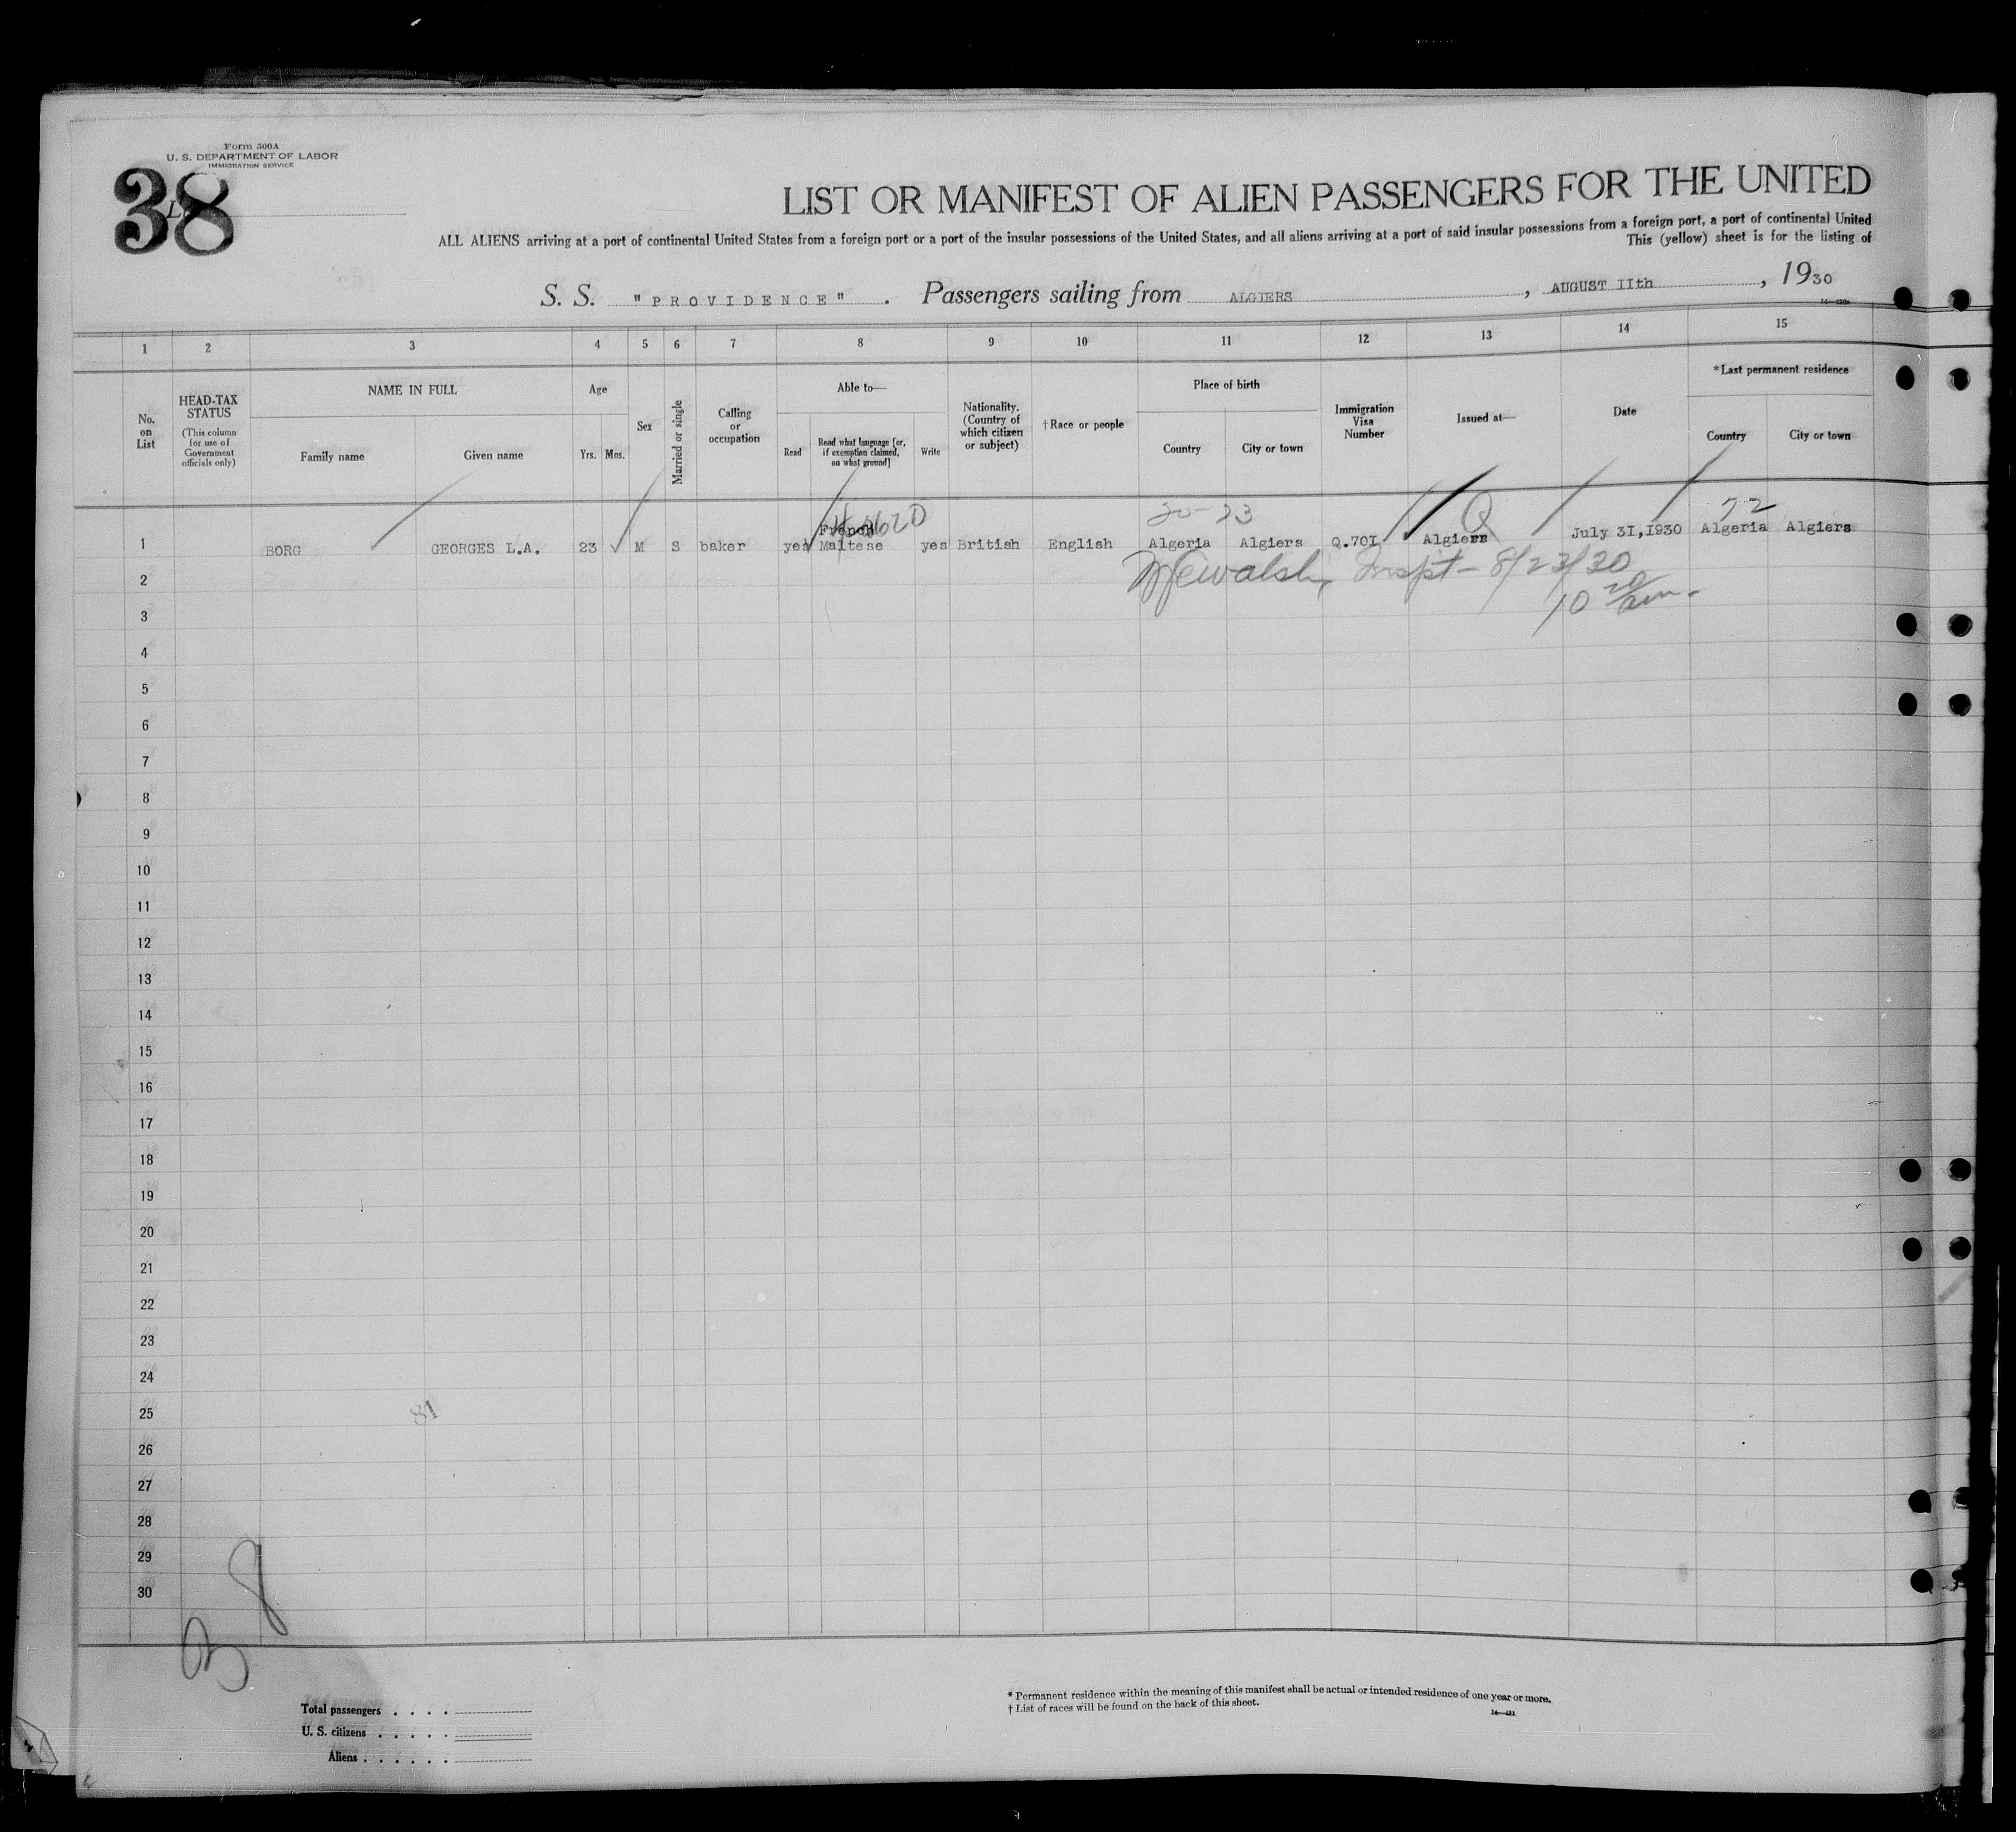 Form 500A
U. S. DEPARTMENT OF LABOR
IMMIGRATION SERVICE
38
LIST OR MANIFEST OF ALIEN PASSENGERS FOR THE UNITED
ALL ALIENS arriving at a port of continental United States from a foreign port or a port of the insular possessions of the United States, and all aliens arriving at a port of said insular possessions from a foreign port, a port of continental United
This (yellow) sheet is for the listing of
S. S. "PROVIDENCE". Passengers sailing from ALGIERS, AUGUST IIth, 1930
1 2 3 4 5 6 7 8 9 10 11 12 13 14 15
No. on List
HEAD-TAX STATUS
(This column for use of Government officials only)
NAME IN FULL
Family name Given name
Age
Yrs. Mos.
Sex
Married or single
Calling or occupation
Able to—
Read
Read what language [or, if exemption claimed, on what ground]
Write
Nationality. (Country of which citizen or subject)
†Race or people
Place of birth
Country City or town
Immigration Visa Number
Issued at—
Date
*Last permanent residence
Country City or town
20-23 Q 72
French
1 BORG GEORGES L.A. 23 M S baker yes Maltese yes British English Algeria Algiers Q.70I Algiers July 3I,I930 Algeria Algiers
Inspt - 8/23/30
10 20/am.
2
3
4
5
6
7
8
9
10
11
12
13
14
15
16
17
18
19
20
21
22
23
24
25 81
26
27
28
29
30
B 8
Total passengers . . . .
U. S. citizens . . . . .
Aliens . . . . . .
* Permanent residence within the meaning of this manifest shall be actual or intended residence of one year or more.
† List of races will be found on the back of this sheet.